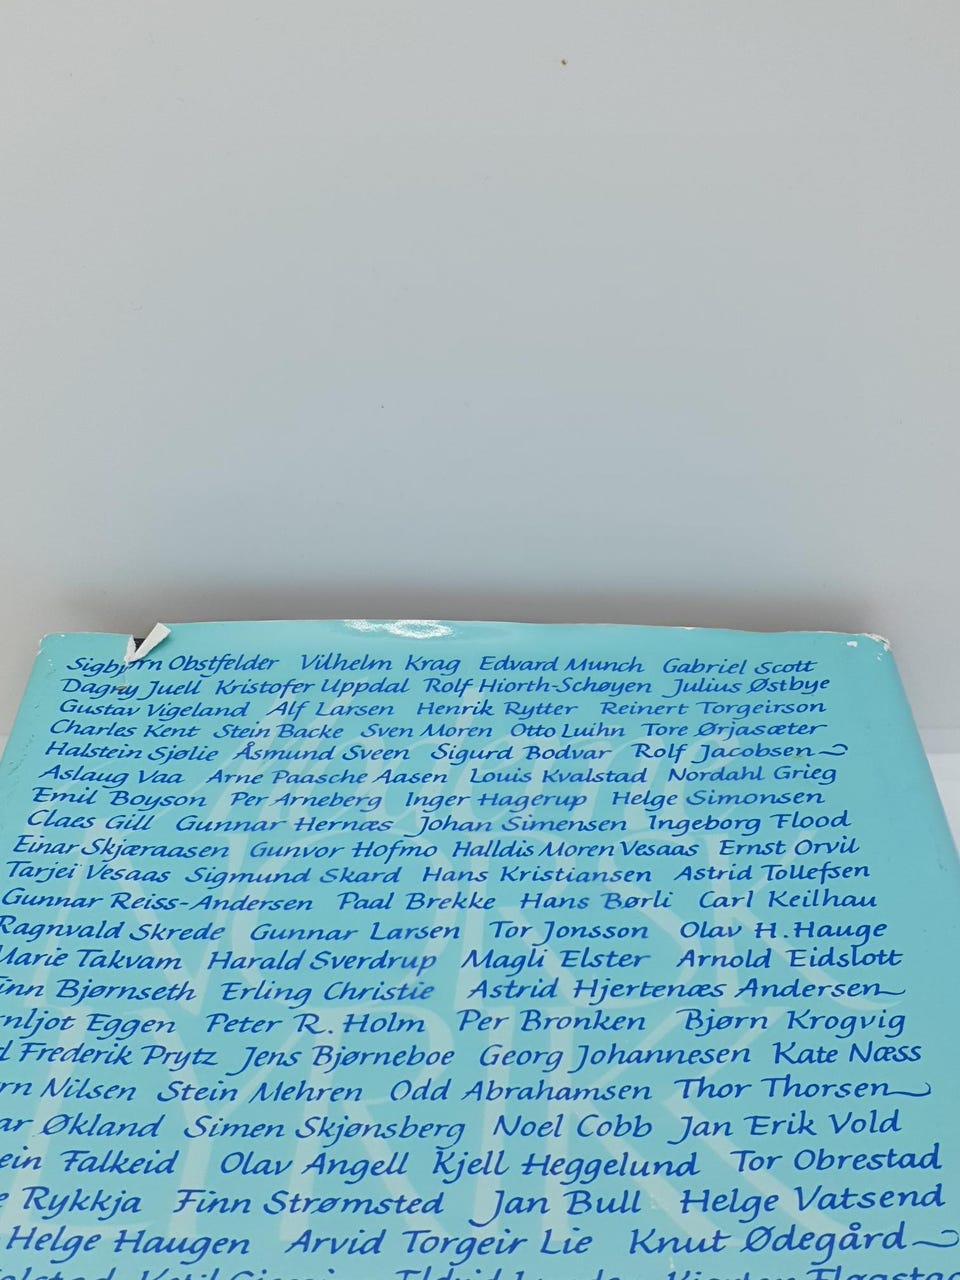 Sigbjørn Obstfelder Vilhelm Krag Edvard Munch Gabriel Scott
Dagny Juell Kristofer Uppdal Rolf Hiorth-Schøyen Julius Østbye
Gustav Vigeland Alf Larsen Henrik Rytter Reinert Torgeirson
Charles Kent Stein Backe Sven Moren Otto Luihn Tore Ørjasæter
Halstein Sjølie Åsmund Sveen Sigurd Bodvar Rolf Jacobsen
Aslaug Vaa Arne Paasche Aasen Louis Kvalstad Nordahl Grieg
Emil Boyson Per Arneberg Inger Hagerup Helge Simonsen
Claes Gill Gunnar Hernæs Johan Simensen Ingeborg Flood
Einar Skjæraasen Gunvor Hofmo Halldis Moren Vesaas Ernst Orvil
Tarjei Vesaas Sigmund Skard Hans Kristiansen Astrid Tollefsen
Gunnar Reiss-Andersen Paal Brekke Hans Børli Carl Keilhau
Ragnvald Skrede Gunnar Larsen Tor Jonsson Olav H. Hauge
Marie Takvam Harald Sverdrup Magli Elster Arnold Eidslott
inn Bjørnseth Erling Christie Astrid Hjertenæs Andersen
nljot Eggen Peter R. Holm Per Bronken Bjørn Krogvig
Frederik Prytz Jens Bjørneboe Georg Johannesen Kate Næss
rn Nilsen Stein Mehren Odd Abrahamsen Thor Thorsen
ar Økland Simen Skjønsberg Noel Cobb Jan Erik Vold
ein Falkeid Olav Angell Kjell Heggelund Tor Obrestad
e Rykkja Finn Strømsted Jan Bull Helge Vatsend
Helge Haugen Arvid Torgeir Lie Knut Ødegård
NORSK
LYRIKK